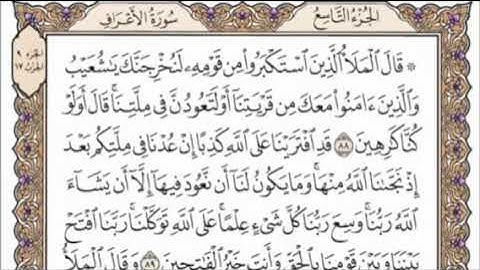 الجزء التاسع
سورة الأعراف
الجزء ٩
الحزب ١٧
۞ قَالَ ٱلْمَلَأُ ٱلَّذِينَ ٱسْتَكْبَرُوا۟ مِن قَوْمِهِۦ لَنُخْرِجَنَّكَ يَٰشُعَيْبُ
وَٱلَّذِينَ ءَامَنُوا۟ مَعَكَ مِن قَرْيَتِنَآ أَوْ لَتَعُودُنَّ فِى مِلَّتِنَا ۚ قَالَ أَوَلَوْ
كُنَّا كَٰرِهِينَ ٨٨ قَدِ ٱفْتَرَيْنَا عَلَى ٱللَّهِ كَذِبًا إِنْ عُدْنَا فِى مِلَّتِكُم بَعْدَ
إِذْ نَجَّىٰنَا ٱللَّهُ مِنْهَا ۚ وَمَا يَكُونُ لَنَآ أَن نَّعُودَ فِيهَآ إِلَّآ أَن يَشَآءَ
ٱللَّهُ رَبُّنَا ۚ وَسِعَ رَبُّنَا كُلَّ شَىْءٍ عِلْمًا ۚ عَلَى ٱللَّهِ تَوَكَّلْنَا ۚ رَبَّنَا ٱفْتَحْ
بَيْنَنَا وَبَيْنَ قَوْمِنَا بِٱلْحَقِّ وَأَنتَ خَيْرُ ٱلْفَٰتِحِينَ ٨٩ وَقَالَ ٱلْمَلَأُ